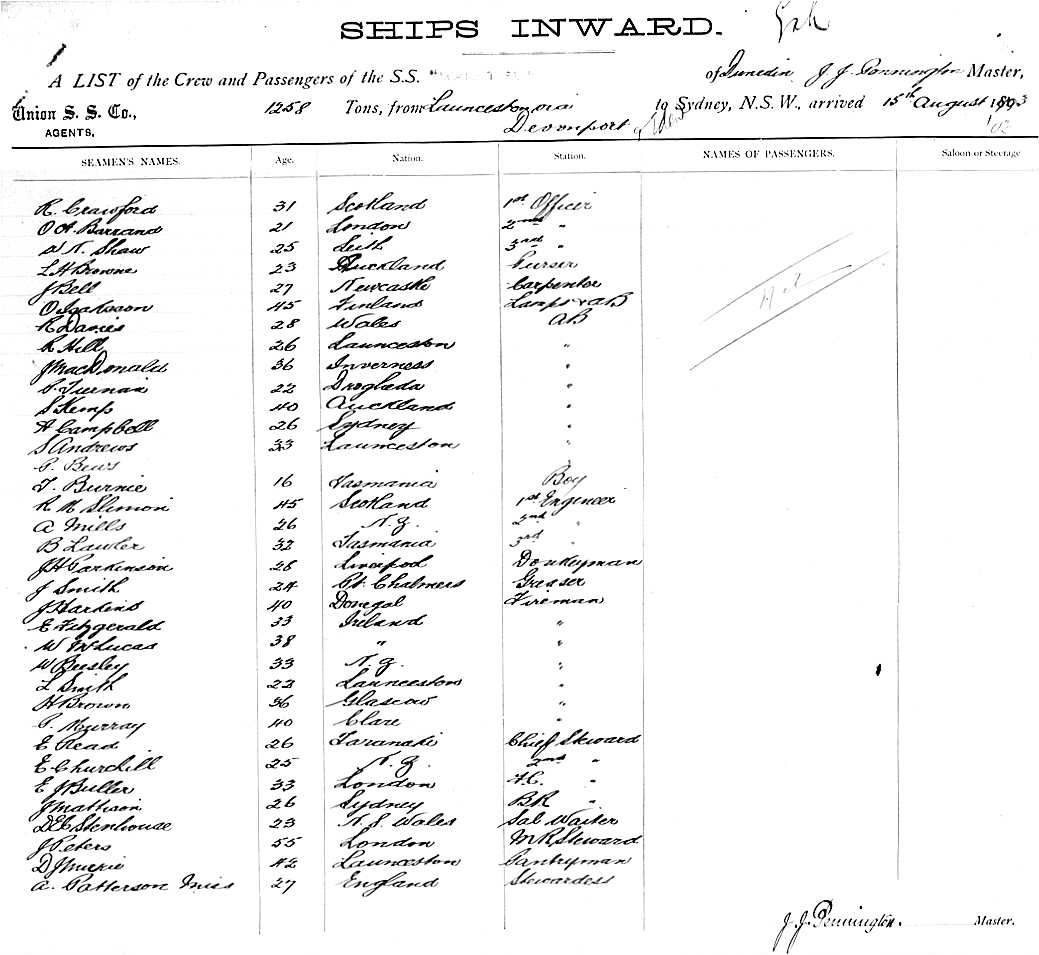 SHIPS INWARD.
A LIST of the Crew and Passengers of the S.S. " of Dunedin J J Pennington Master,
Union S. S. Co., 1258 Tons, from Launceston via to Sydney, N.S.W., arrived 15th August 1893
AGENTS, Devonport
SEAMEN'S NAMES. Age. Nation. Station. NAMES OF PASSENGERS. Saloon or Steerage
R. Crawford 31 Scotland 1st Officer
O A Barrand 21 London 2nd "
Shaw 25 Leith 3rd "
L H Browne 23 Auckland Purser
J Bell 27 Newcastle Carpenter
O Isaksson 45 Finland Lamps & AB
R Davies 28 Wales AB
R Hill 26 Launceston "
J MacDonald 36 Inverness "
P. Tiernan 22 Drogheda "
S Kemp 40 Auckland "
A Campbell 26 Sydney "
S Andrews 33 Launceston "
P. Bews
T. Burnie 16 Tasmania Boy
R M Slimon 45 Scotland 1st Engineer
A Mills 26 N.Z. 2nd "
B Lawler 32 Tasmania 3rd "
J H Parkinson 28 Liverpool Donkeyman
J Smith 24 Pt. Chalmers Greaser
J Harkins 40 Donegal Fireman
E Fitzgerald 33 Ireland "
W McLucas 38 " "
W Beesley 33 N.Z. "
L Smith 22 Launceston "
H Brown 36 Glascow "
P. Murray 40 Clare "
E Read 26 Taranaki Chief Steward
E Churchill 25 N.Z. 2nd "
E J Buller 33 London F.C. "
J Mathison 26 Sydney BR "
D E C Stenhouse 23 N. S. Wales Sal Waiter
J Peters 55 London M R Steward
D J Murie 42 Launceston Pantryman
A. Patterson Miss 27 England Stewardess
J. J. Pennington. Master.